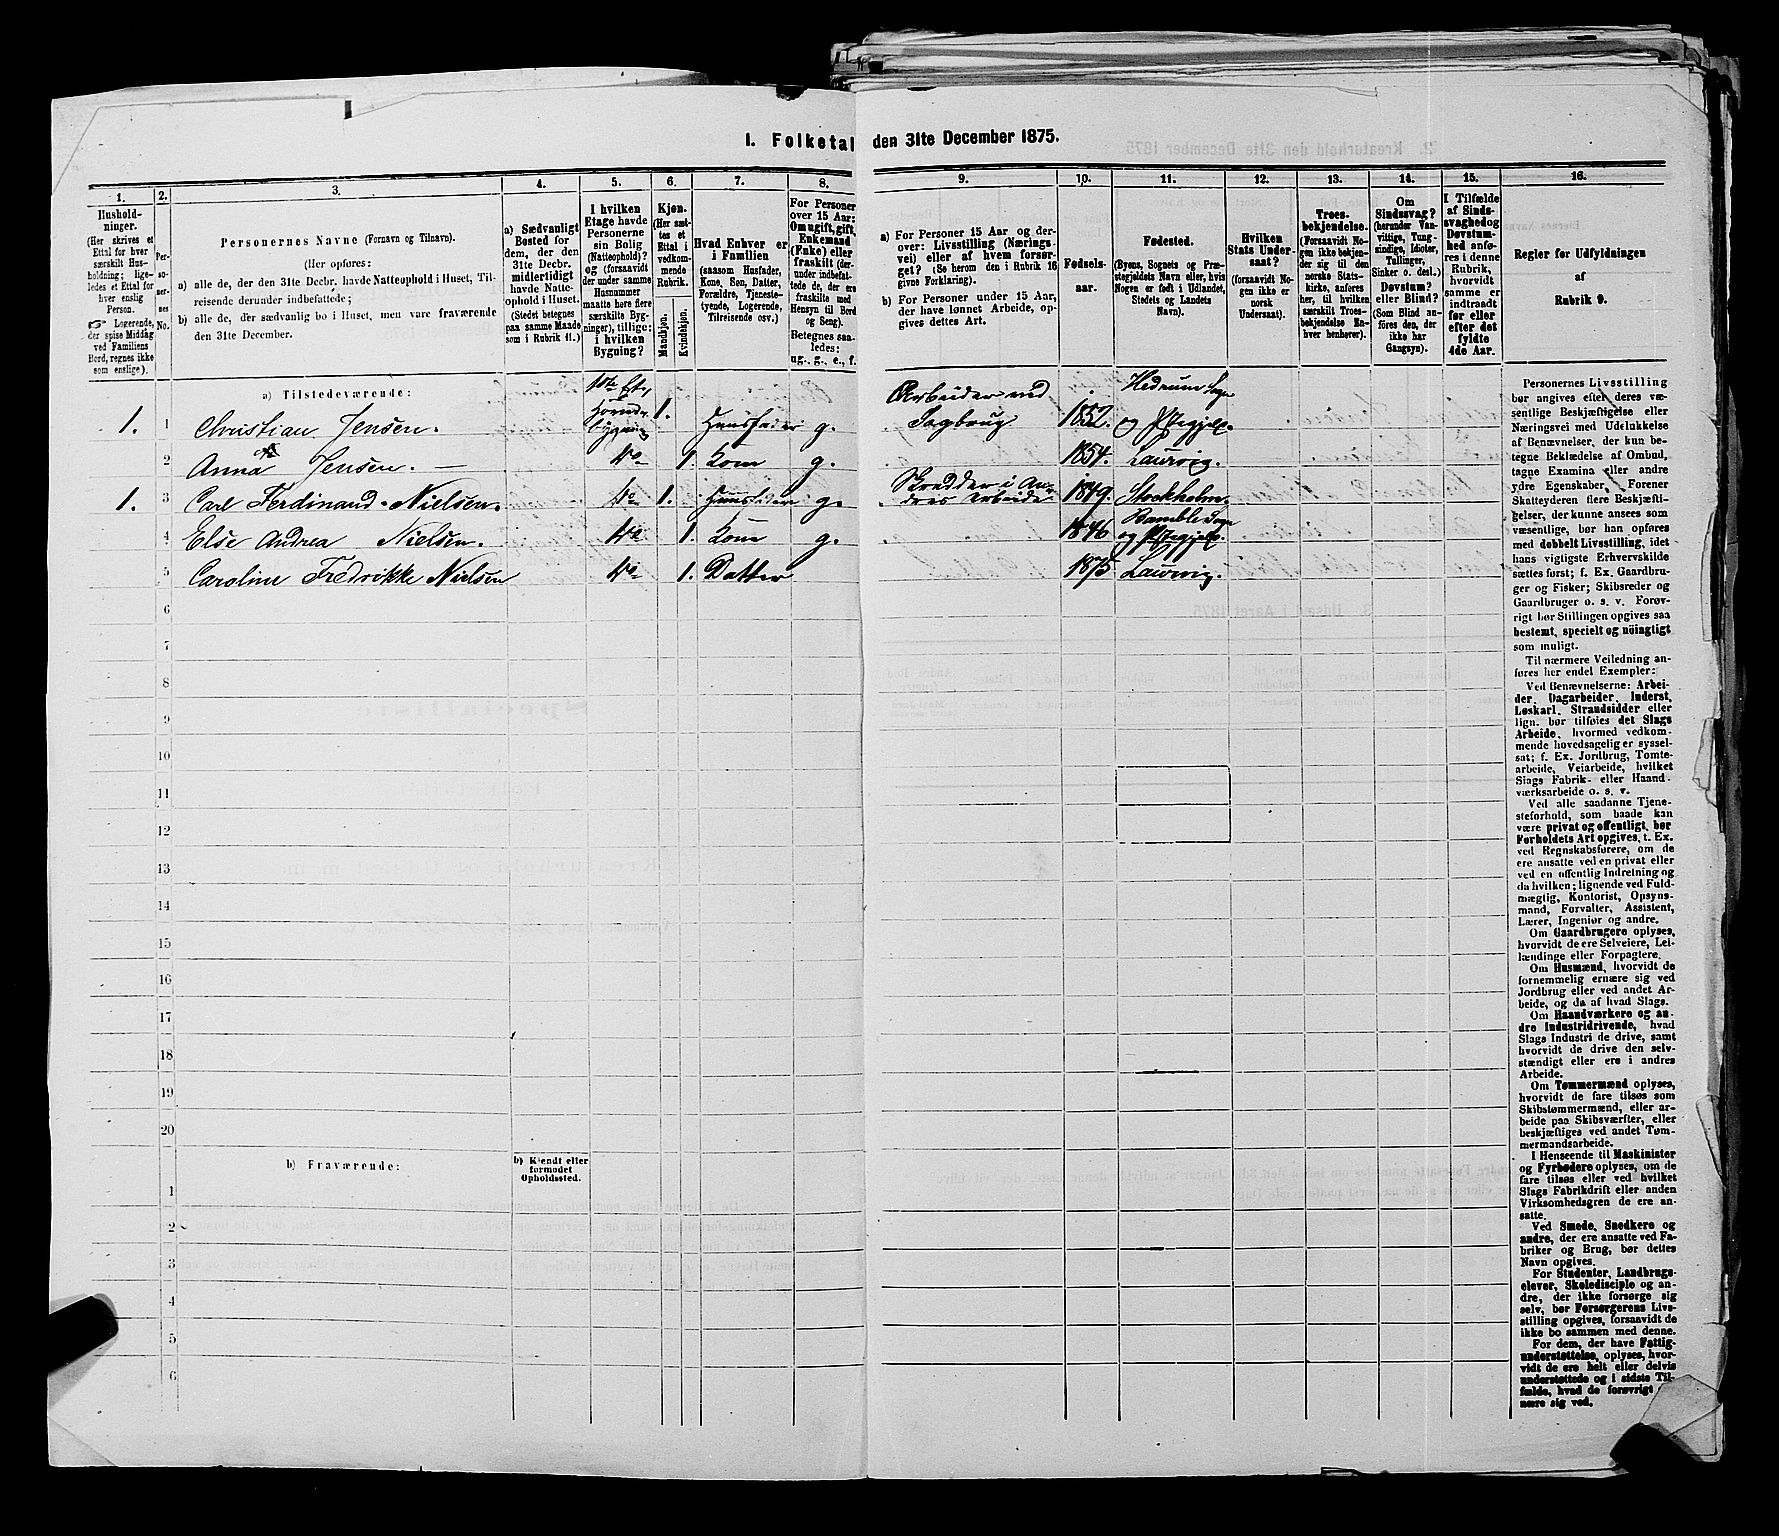 1. Folketal den 31te December 1875.
1. 2. 3. 4. 5. 6. 7. 8. 9. 10. 11. 12. 13. 14. 15. 16.
Hushold-
ninger.
(Her skrives et
Ettal for hver
særskilt Hus-
holdning; lige-
ledes et Ettal for
hver enslig
Person.
Logerende,
der spise Middag
ved Familiens
Bord, regnes ikke
som enslige).
Per-
so-
ner-
nes
No.
Personernes Navne (Fornavn og Tilnavn).
(Her opføres:
a) alle de, der den 31te Decbr. havde Natteophold i Huset, Til-
reisende derunder indbefattede;
b) alle de, der sædvanlig bo i Huset, men vare fraværende
den 31te December.
a) Sædvanligt
Bosted for
dem, der den
31te Decbr.
midlertidigt
havde Natte-
ophold i Huset.
(Stedet betegnes
paa samme Maade
som i Rubrik 11.)
I hvilken
Etage havde
Personerne
sin Bolig
(Natteophold)?
og (forsaavidt
der under samme
Husnummer
maatte høre flere
særskilte Byg-
ninger), tillige:
i hvilken
Bygning?
Kjøn.
(Her sæt-
tes et
Ettal i
vedkom-
mende
Rubrik.
Mandkjøn.
Kvindekjøn.
Hvad Enhver er
i Familien
(saasom Husfader,
Kone, Søn, Datter,
Forældre, Tjeneste-
tyende, Logerende,
Tilreisende osv.)
For Personer
over 15 Aar:
Om ugift, gift,
Enkemand
(Enke) eller
fraskilt (der-
under indbefat-
tede de, der ere
fraskilte med
Hensyn til Bord
og Seng).
Betegnes saa-
ledes:
ug., g., e., f.
a) For Personer 15 Aar og der-
over: Livsstilling (Nærings-
vei) eller af hvem forsør-
get? (Se herom den i Rubrik 16
givne Forklaring).
b) For Personer under 15 Aar,
der have lønnet Arbeide, op-
gives dettes Art.
Fødsels-
aar.
Fødested.
(Byens, Sognets og Præ-
stegjeldets Navn eller, hvis
Nogen er født i Udlandet,
Stedets og Landets
Navn).
Hvilken
Stats Under-
saat?
(forsaavidt No-
gen ikke er
norsk
Undersaat).
Troes-
bekjendelse.
(Forsaavidt No-
gen ikke bekjen-
der sig til den
norske Stats-
kirke, anføres
her, til hvilken
særskilt Troes-
bekjendelse En-
hver henhører).
Om
Sindssvag?
(herunder Van-
vittige, Tung-
sindige, Idioter,
Tullinger,
Sinker o. desl.)
Døvstum?
eller Blind?
(Som Blind an-
føres den, der
ikke har
Gangsyn).
I Tilfælde
af Sinds-
svaghed og
Døvstum-
hed anfø-
res i denne
Rubrik,
hvorvidt
samme er
indtraadt
før eller
efter det
fyldte
4de Aar.
Regler for Udfyldningen
af
Rubrik 9.
a) Tilstedeværende:
1. 1 Christian Jensen. 1ste Et. Hoved-bygning 1. Huusfader g. Arbeider ved Sagbrug 1852. Hedrum Sogn og Pstegjeld.
2 Anna Jensen. — do 1. Kone g. 1854. Laurvig.
1. 3 Carl Ferdinand Nielsen. do 1. Huusfader g. Skrædder i Andres Arbeide 1849. Stockholm.
4 Else Andrea Nielsen. do 1. Kone g. 1846 Bamble Sogn og Pstegjeld.
5 Caroline Fredrikke Nielsen do 1. Datter 1875 Laurvig.
6
7
8
9
10
11
12
13
14
15
16
17
18
19
20
b) Fraværende:
b) Kjendt eller
formodet
Opholdssted.
1
2
3
4
5
6
Personernes Livsstilling
bør angives efter deres væ-
sentlige Beskjæftigelse eller
Næringsvei med Udelukkelse
af Benævnelser, der kun be-
tegne Beklædelse af Ombud,
tagne Examina eller andre
ydre Egenskaber. Forener
Skatteyderen flere Beskjæfti-
gelser, der kunne ansees som
væsentlige, bør han opføres
med dobbelt Livsstilling, idet
hans vigtigste Erhvervskilde
sættes først; f. Ex. Gaardbru-
ger og Fisker; Skibsreder og
Gaardbruger o. s. v. Forøv-
rigt bør Stillingen opgives saa
bestemt, specielt og nöiagtigt
som muligt.
Til nærmere Veiledning an-
føres her endel Exempler:
Ved Benævnelserne: Arbei-
der, Dagarbeider, Inderst,
Løskarl, Strandsidder eller
lign. bør tilføies det Slags
Arbeide, hvormed vedkom-
mende hovedsagelig er syssel-
sat; f. Ex. Jordbrug, Tomte-
arbeide, Veiarbeide, hvilket
Slags Fabrik- eller Haand-
værksarbeide o. s. v.
Ved alle saadanne Tjene-
steforhold, som baade kan
være privat og offentligt, bør
Forholdets Art opgives, t. Ex.
ved Regnskabsførere, om de
ere ansatte ved en privat eller
ved en offentlig Indretning og
da hvilken; lignende ved Fuld-
mægtig, Kontorist, Opsyns-
mand, Forvalter, Assistent,
Lærer, Ingeniør og andre.
Om Gaardbrugere oplyses,
hvorvidt de ere Selveiere, Lei-
lændinge eller Forpagtere.
Om Husmænd, hvorvidt de
fornemmelig ernære sig ved
Jordbrug eller ved andet Ar-
beide, og da af hvad Slags.
Om Haandværkere og an-
dre Industridrivende, hvad
Slags Industri de drive, samt
hvorvidt de drive den selv-
stændigt eller ere i andres
Arbeide.
Om Tømmermænd oplyses,
hvorvidt de fare tilsøs som
Skibstømmermænd, eller ar-
beide paa Skibsværfter, eller
beskjæftiges ved andet Tøm-
mermandsarbeide.
I Henseende til Maskinister
og Fyrbødere oplyses, om de
fare tilsøs eller ved hvilket
Slags Fabrikdrift eller anden
Virksomhedsgren de ere an-
satte.
Ved Smede, Snedkere og
andre, der ere ansatte ved Fa-
briker og Brug, bør dettes
Navn opgives.
For Studenter, Landbrugs-
elever, Skoledisciple og an-
dre, der ikke forsørge sig
selv, bør Forsørgerens Livs-
stilling opgives, forsaavidt de
ikke bo sammen med denne.
For dem, der have Fattig-
understøttelse, oplyses, hvor-
vidt de ere helt eller delvis
understøttede og i sidste Til-
fælde, hvad de forøvrigt
nære sig ved.